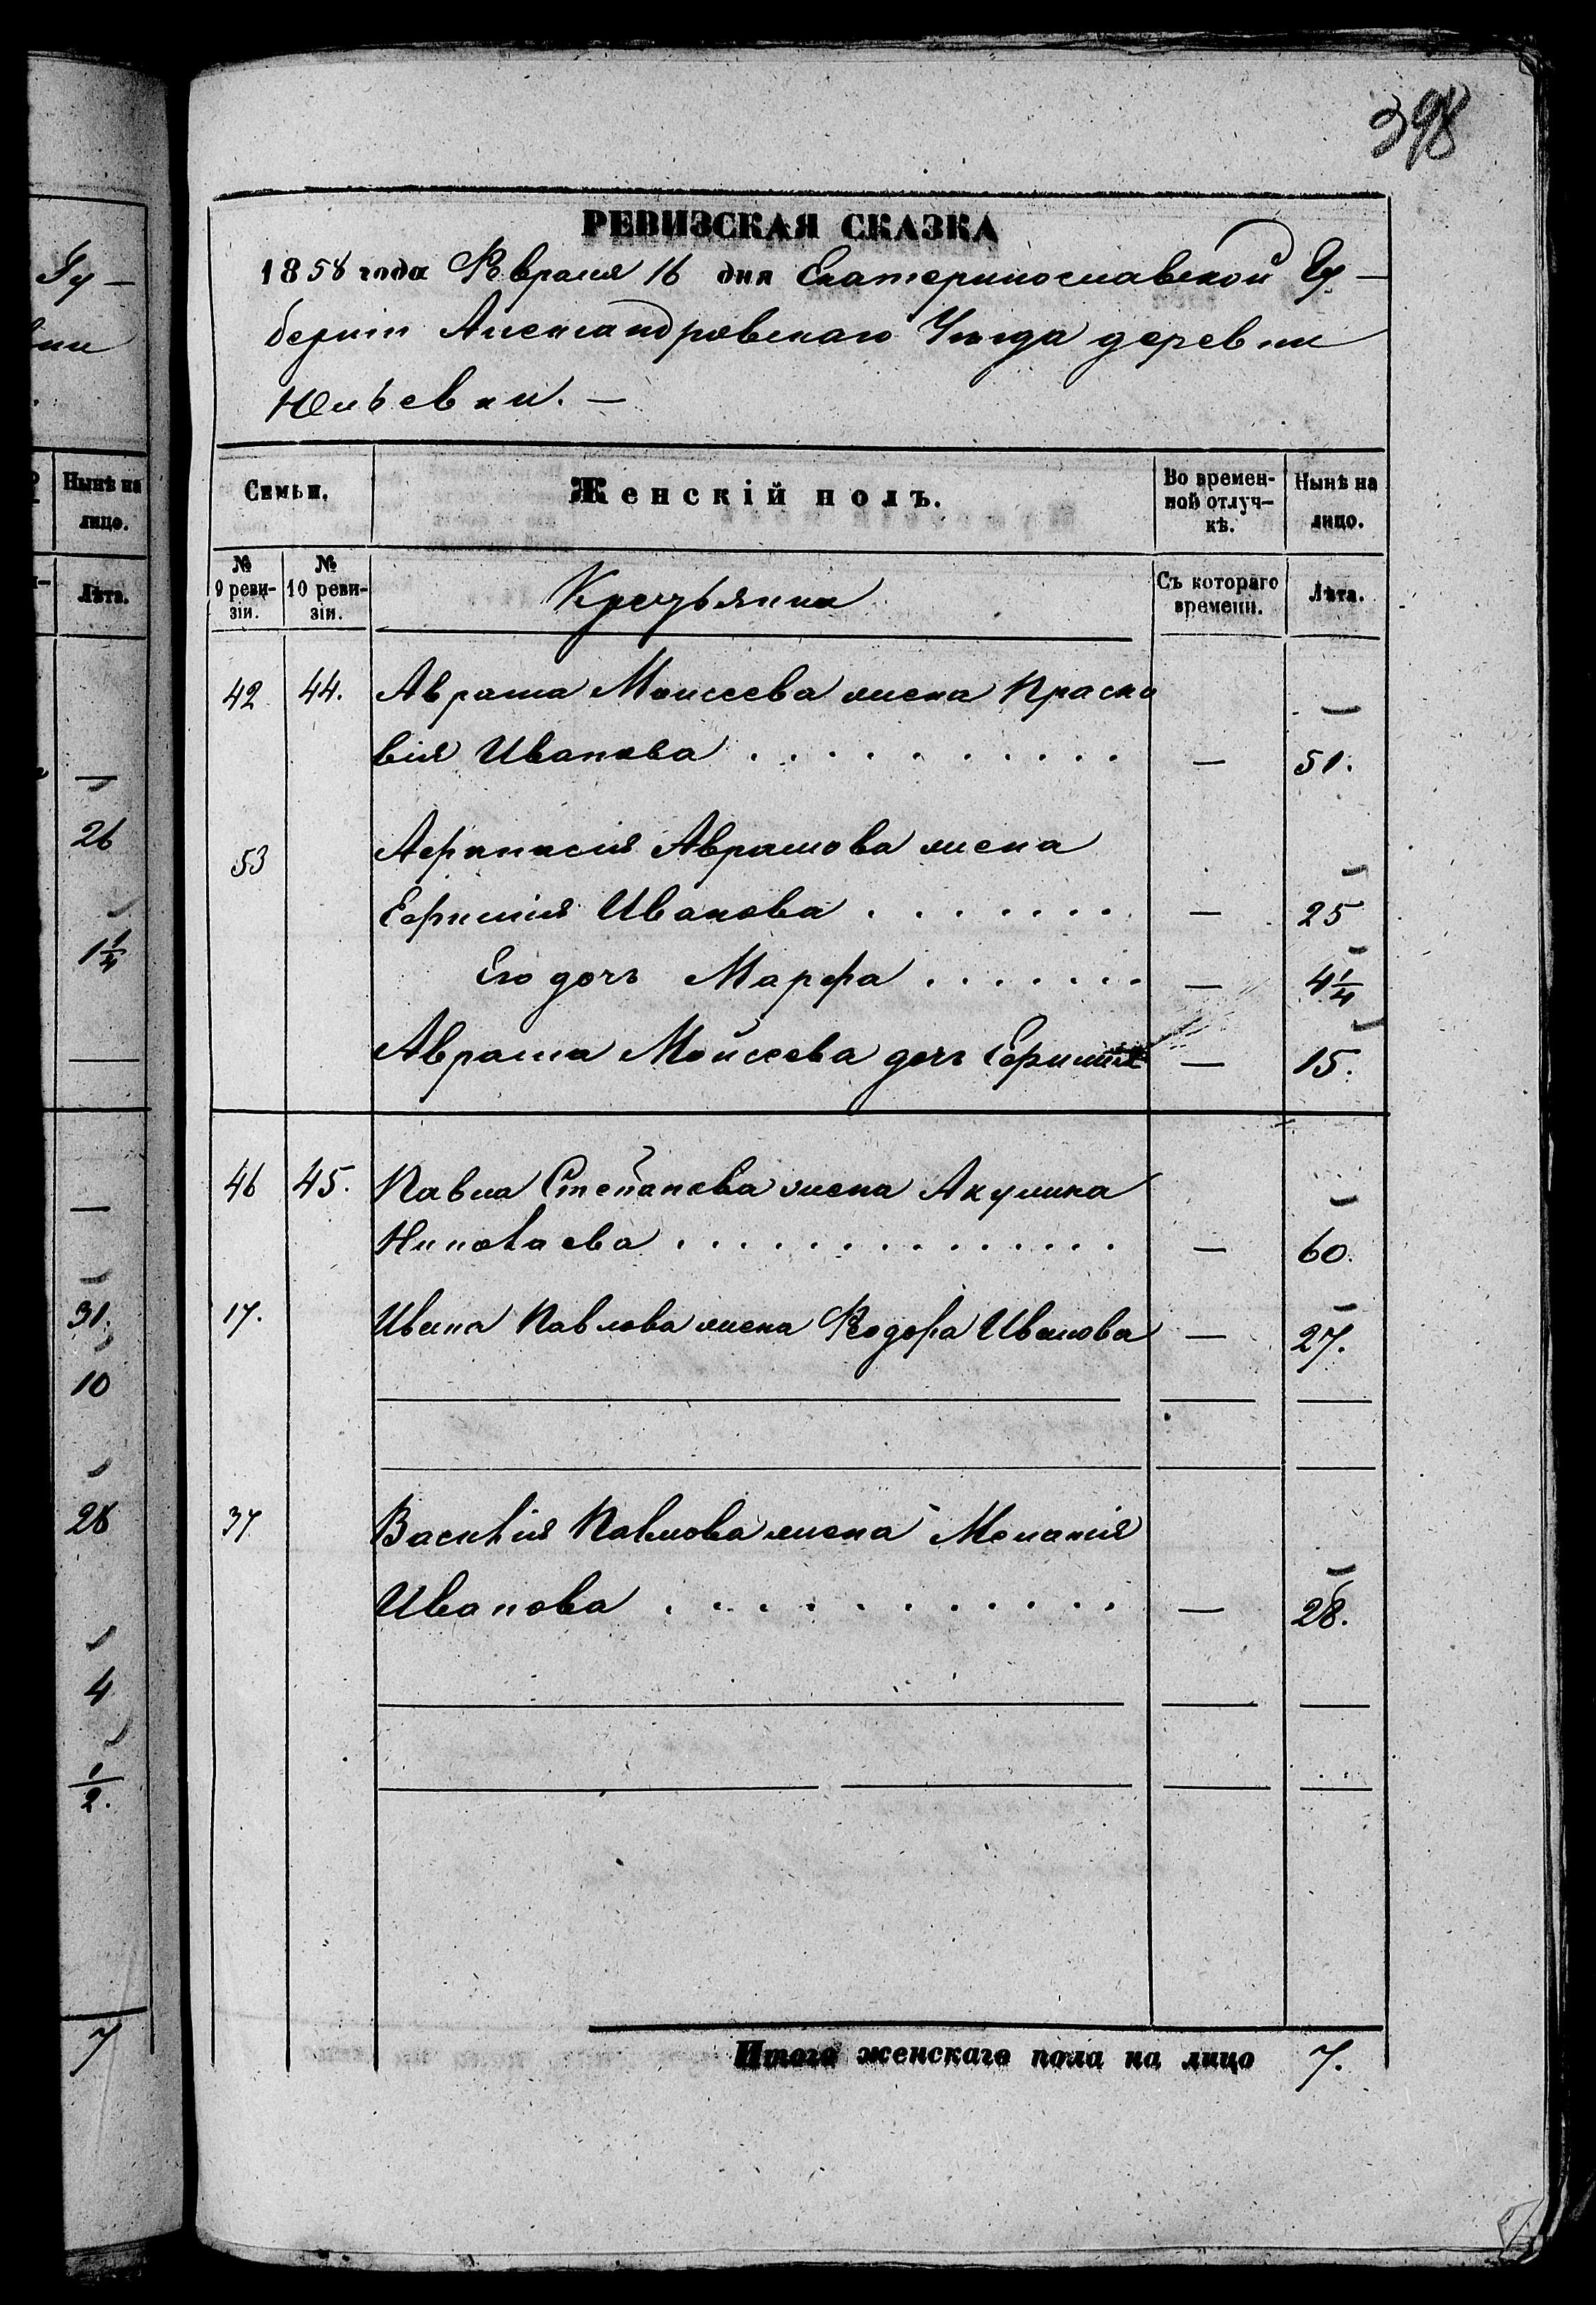 Гу-
Нынѣ на
лицо.
Лѣта.
—
26
1 1/4
—
—
31.
10
28
4
1/2.
7
398
РЕВИЗСКАЯ СКАЗКА
1858 года Февраля 16 дня Екатеринославской Гу-
берніи Александровскаго Уѣзда деревни
Юльевки. —
Семьи.
Женскій полъ.
Во времен-
ной отлуч-
кѣ.
Нынѣ на
лицо.
№
9 реви-
зіи.
№
10 реви-
зіи.
Съ котораго
времени.
Лѣта.
42 44. Аврама Моисеева жена Праско
вія Иванова . . . . . . . . . . — 51.
53 Афанасія Аврамова жена
Ефимія Иванова . . . . . . . — 25
Его дочь Марфа . . . . . . . — 4 1/4
Аврама Мойсеева дочь Ефимія — 15.
46 45. Павла Степанова жена Акулина
Николаева . . . . . . . . . . . . . . — 60.
17. Ивана Павлова жена Ѳеодора Иванова — 27.
37 Василія Павлова жена Меланія
Иванова . . . . . . . . . . . . — 28.
Итого женскаго пола на лицо 7.